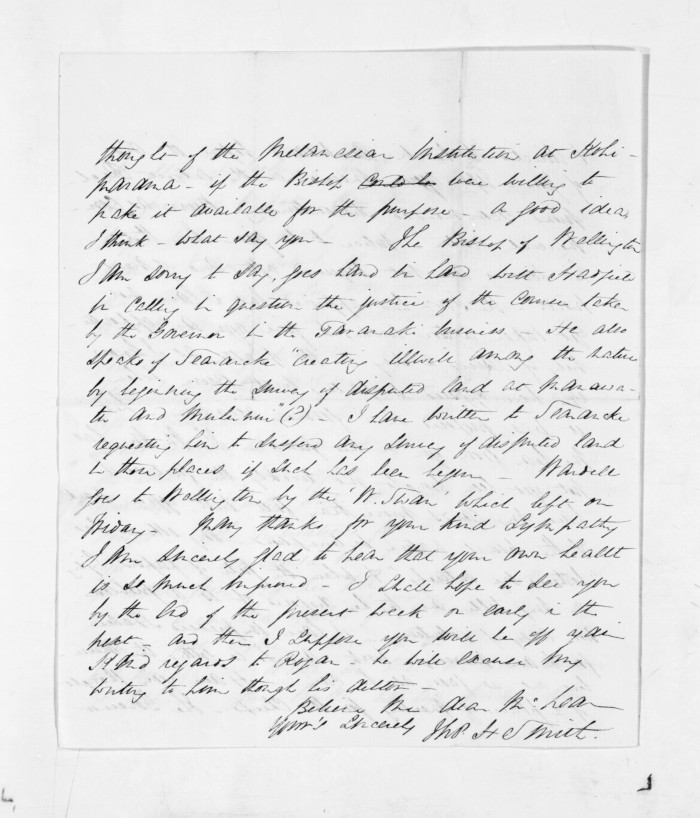 thought of the Melanesian Institution at Kohi-
marama - if the Bishop could be were willing to
make it available for the purpose - a good idea
I think - what say you - The Bishop of Wellington
I am sorry to say goes hand in hand with Hadfield
in calling in question the justice of the course taken
by the Governor in the Taranaki business - He also
speaks of Searancke "creating illwill among the natives
by beginning the survey of disputed land at Manawa-
tu and " (?) - I have written to Searancke
requesting him to suspend any survey of disputed land
in those places if such has been begun - Wardell
goes to Wellington by the 'W. Swan' which left on
Friday - Many thanks for your kind sympathy
I am sincerely glad to hear that your own health
is so much improved - I shall hope to see you
by the end of the present week or early in the
next - and then I suppose you will be off again
Kind regards to Rogan - he will excuse my
writing to him though his debtor -
Believe me dear McLean
Your's sincerely Thos. H Smith.